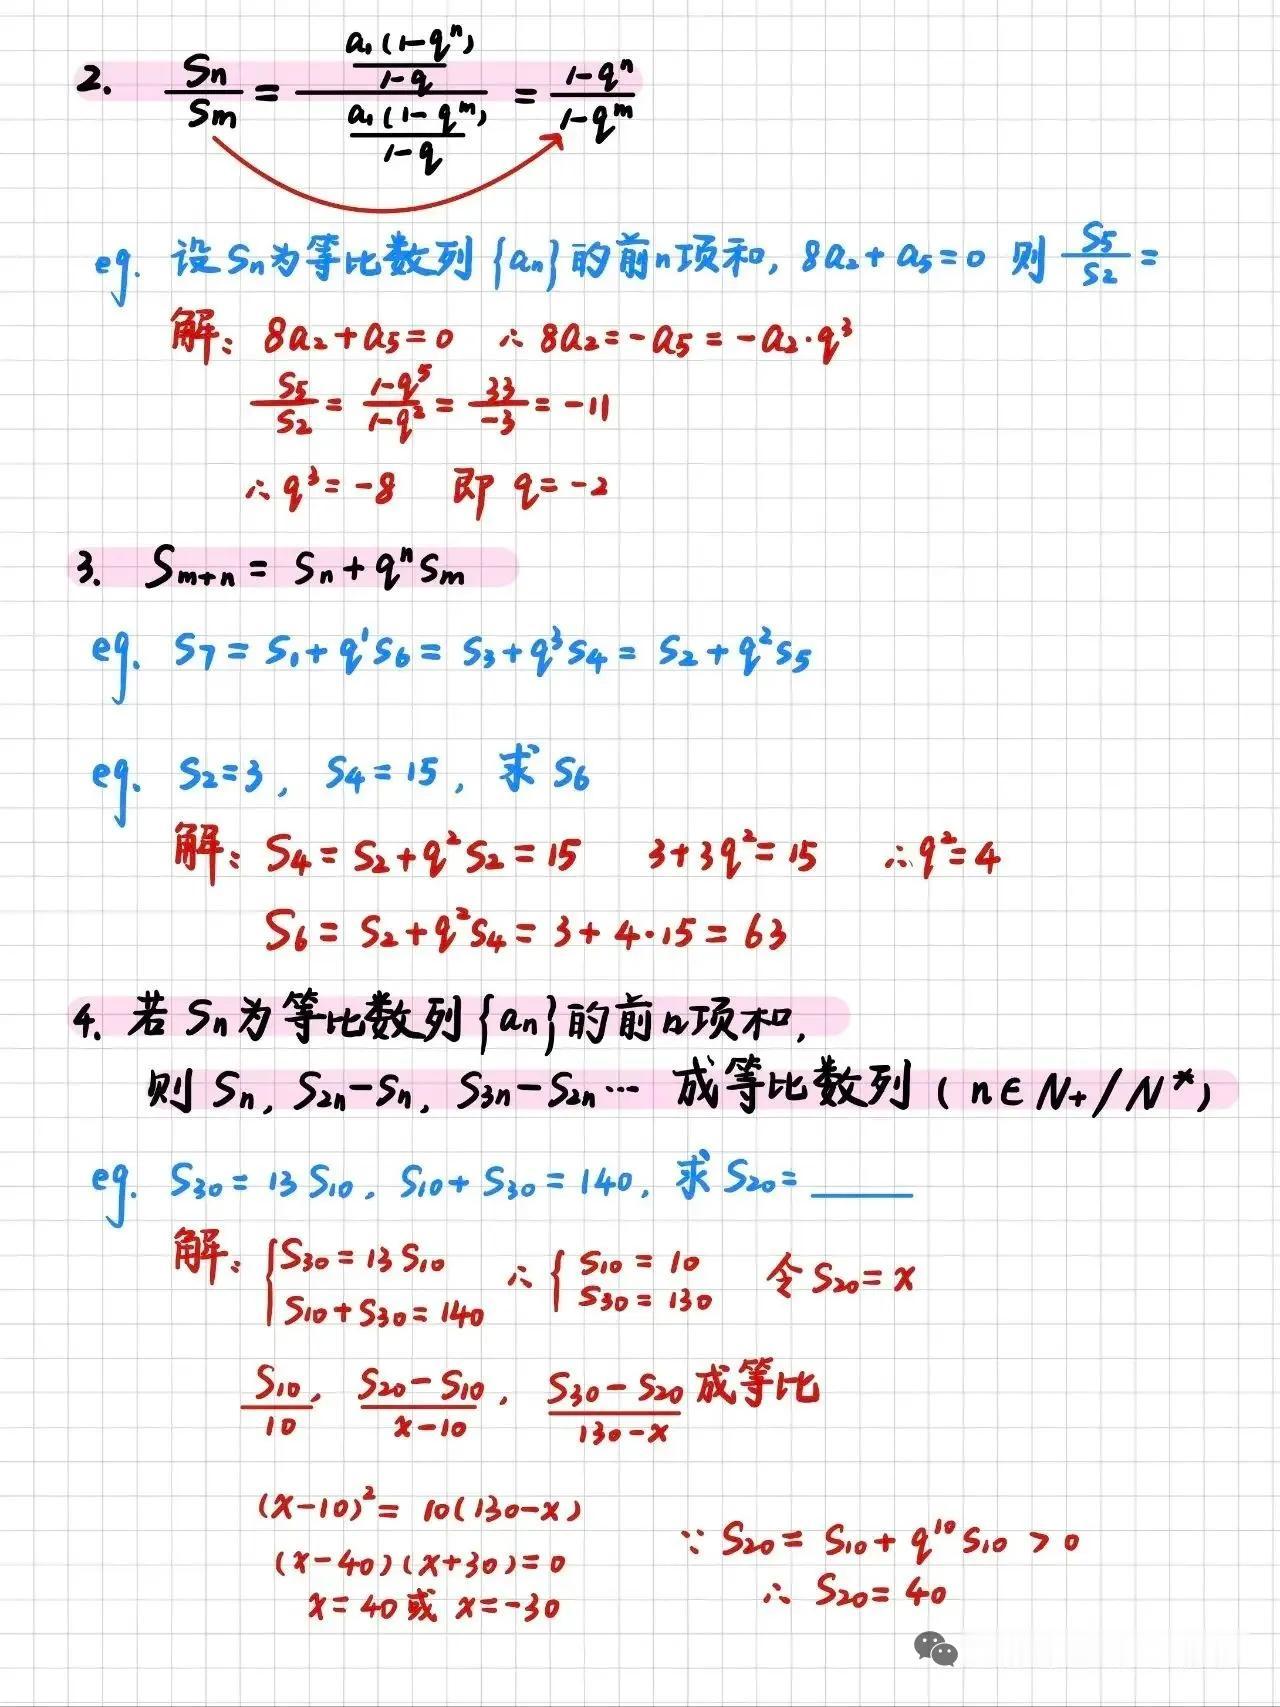 2. Sn/Sm = (a₁(1-qⁿ)/(1-q))/(a₁(1-qᵐ)/(1-q)) = (1-qⁿ)/(1-qᵐ)
eg. 设Sn为等比数列{an}的前n项和, 8a₂+a₅=0 则 S₅/S₂ =
解: 8a₂+a₅=0 ∴8a₂=-a₅=-a₂·q³
S₅/S₂ = (1-q⁵)/(1-q²) = 33/-3 = -11
∴q³=-8 即 q=-2
3. Sm+n = Sn+qⁿSm
eg. S₇=S₁+q¹S₆=S₃+q³S₄=S₂+q²S₅
eg. S₂=3, S₄=15, 求S₆
解: S₄=S₂+q²S₂=15 3+3q²=15 ∴q²=4
S₆=S₂+q²S₄=3+4·15=63
4. 若Sn为等比数列{an}的前n项和,
则Sn, S₂n-Sn, S₃n-S₂n… 成等比数列(n∈N₊/N*)
eg. S₃₀=13S₁₀, S₁₀+S₃₀=140, 求S₂₀=____
解: {S₃₀=13S₁₀ ∴{S₁₀=10 令S₂₀=x
S₁₀+S₃₀=140 S₃₀=130
S₁₀, S₂₀-S₁₀, S₃₀-S₂₀ 成等比
10 x-10 130-x
(x-10)²=10(130-x)
(x-40)(x+30)=0 ∵S₂₀=S₁₀+q¹⁰S₁₀>0
x=40或x=-30 ∴S₂₀=40